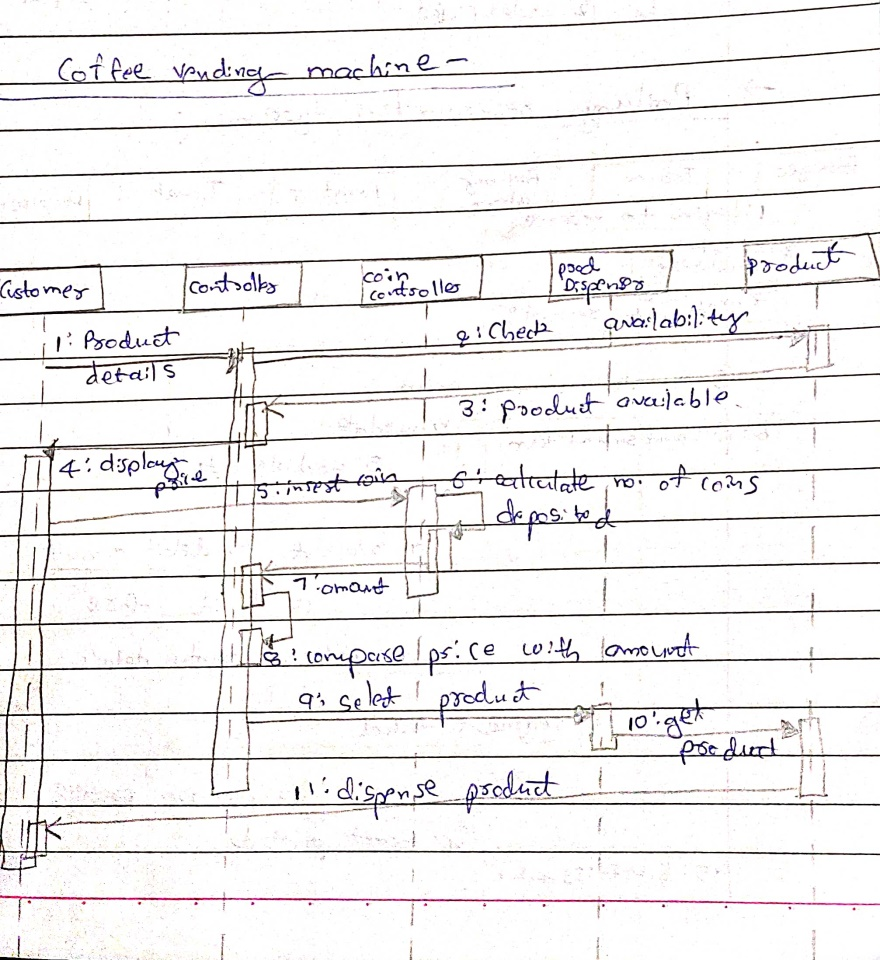 Coffee vending machine -
Customer
Controller
coin
controller
prod
Dispenser
Product
1: Product
details
2: Check availability
3: product available.
4: display
price
5: insert coin
6: calculate no. of coins
deposited
7: amount
8: compare price with amount
9: select product
10: get
product
11: dispense product